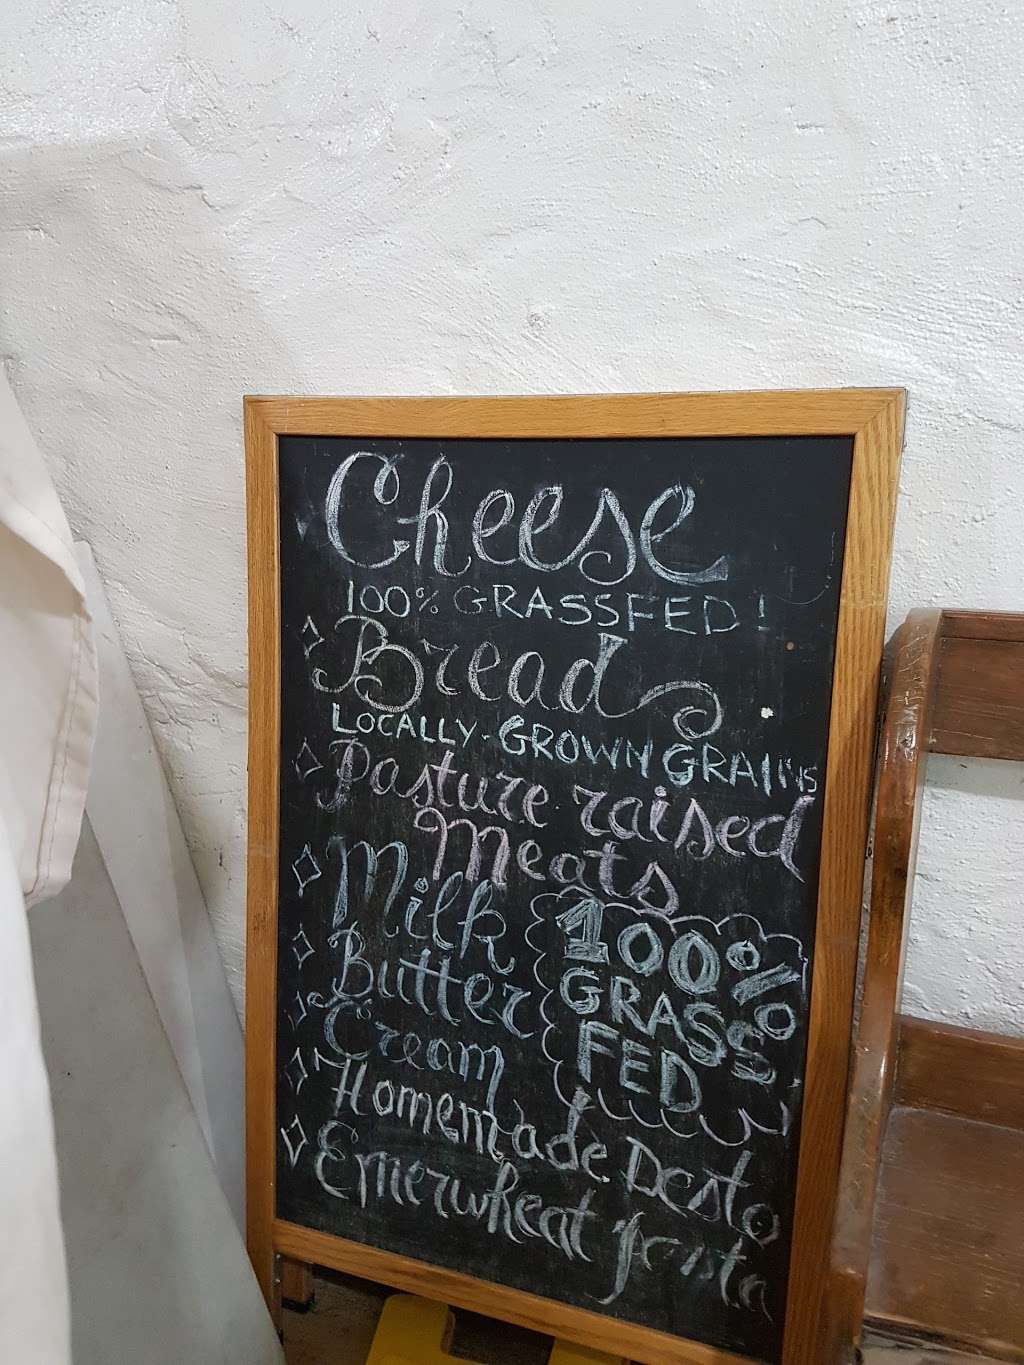 Cheese
100% GRASSFED!
Bread
LOCALLY-GROWN GRAINS
Pasture raised
Meats
Milk
Butter
Cream
100%
GRASS
FED
Homemade Pesto
Emerwheat pasta